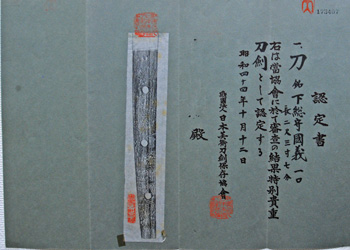 認定書
一、刀 銘 下総守國義 一口
長二尺三寸七分
右は當協會に於て審査の結果特別貴重
刀劍として認定する
昭和四十四年十月十二日
財團法人日本美術刀劍保存協會
殿